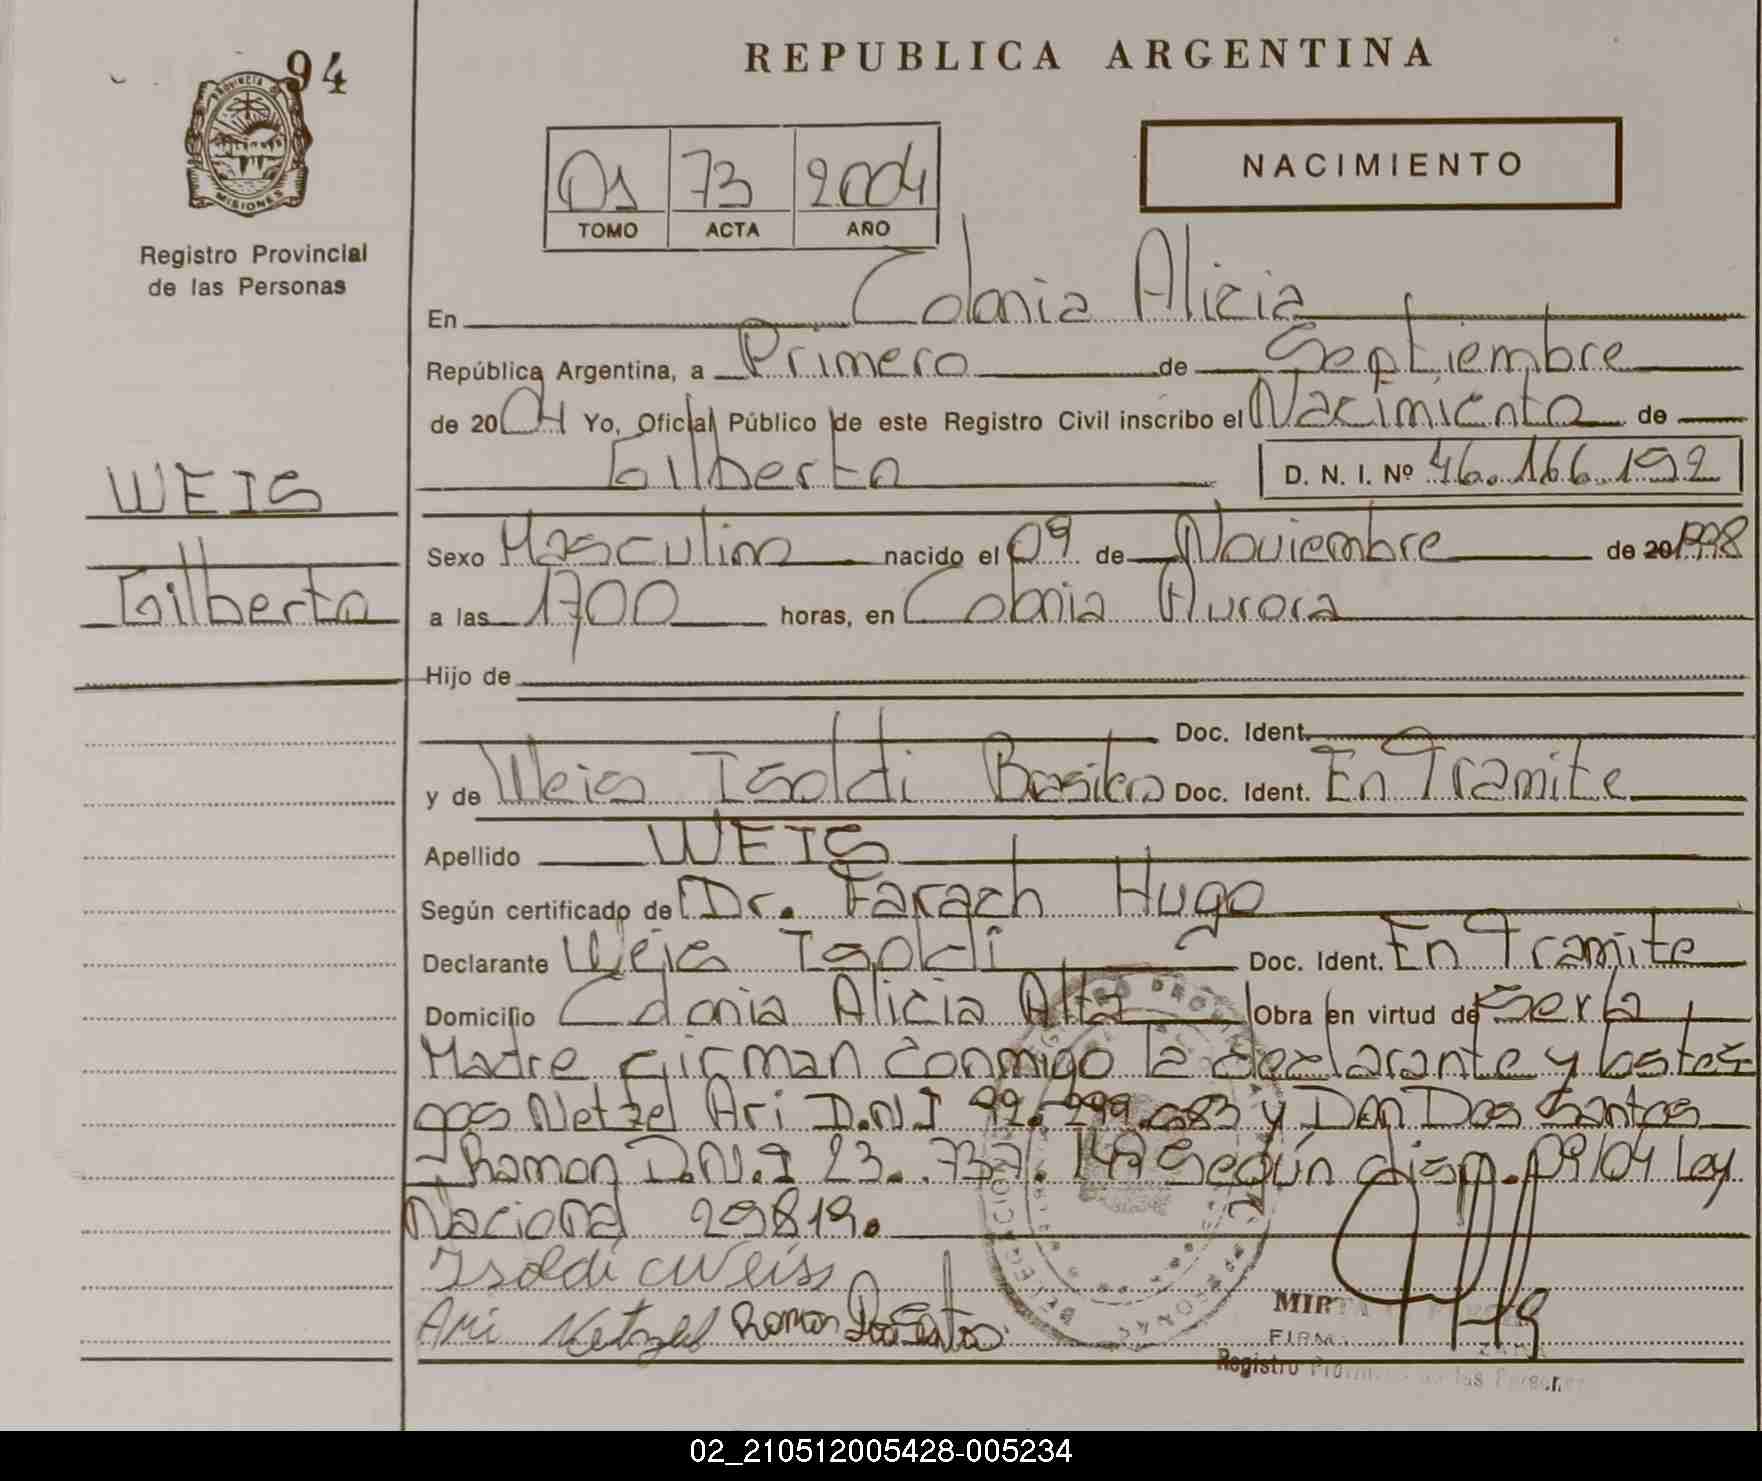 94
REPUBLICA ARGENTINA
PROVINCIA DE
MISIONES
Registro Provincial
de las Personas
01 73 2004
TOMO ACTA AÑO
NACIMIENTO
En Colonia Alicia
República Argentina, a Primero de Septiembre
de 2004 Yo, Oficial Público de este Registro Civil inscribo el Nacimiento de
Gilberto D. N. I. Nº 46.166.192
WEIS
Gilberto
Sexo Masculino nacido el 09 de Noviembre de 20 1998
a las 1700 horas, en Colonia Aurora
Hijo de
Doc. Ident.
y de Weis Isoldi Brasilera Doc. Ident. En Tramite
Apellido WEIS
Según certificado de Dr. Farach Hugo
Declarante Weis Isoldi Doc. Ident. En Tramite
Domicilio Colonia Alicia Alta Obra en virtud de Ser la
Madre firman conmigo la declarante y los tes-
gos Netzel Ari D.N.I 92.299.083 y Don Dos Santos
Ramon D.N.I 23.737.149 Según disp. 09/04 Ley
Nacional 25819.
Isoldi Weiss
Ari Netzel Ramon Dos Santos
MIRTA
Registro Provincial de las Personas
02_210512005428-005234